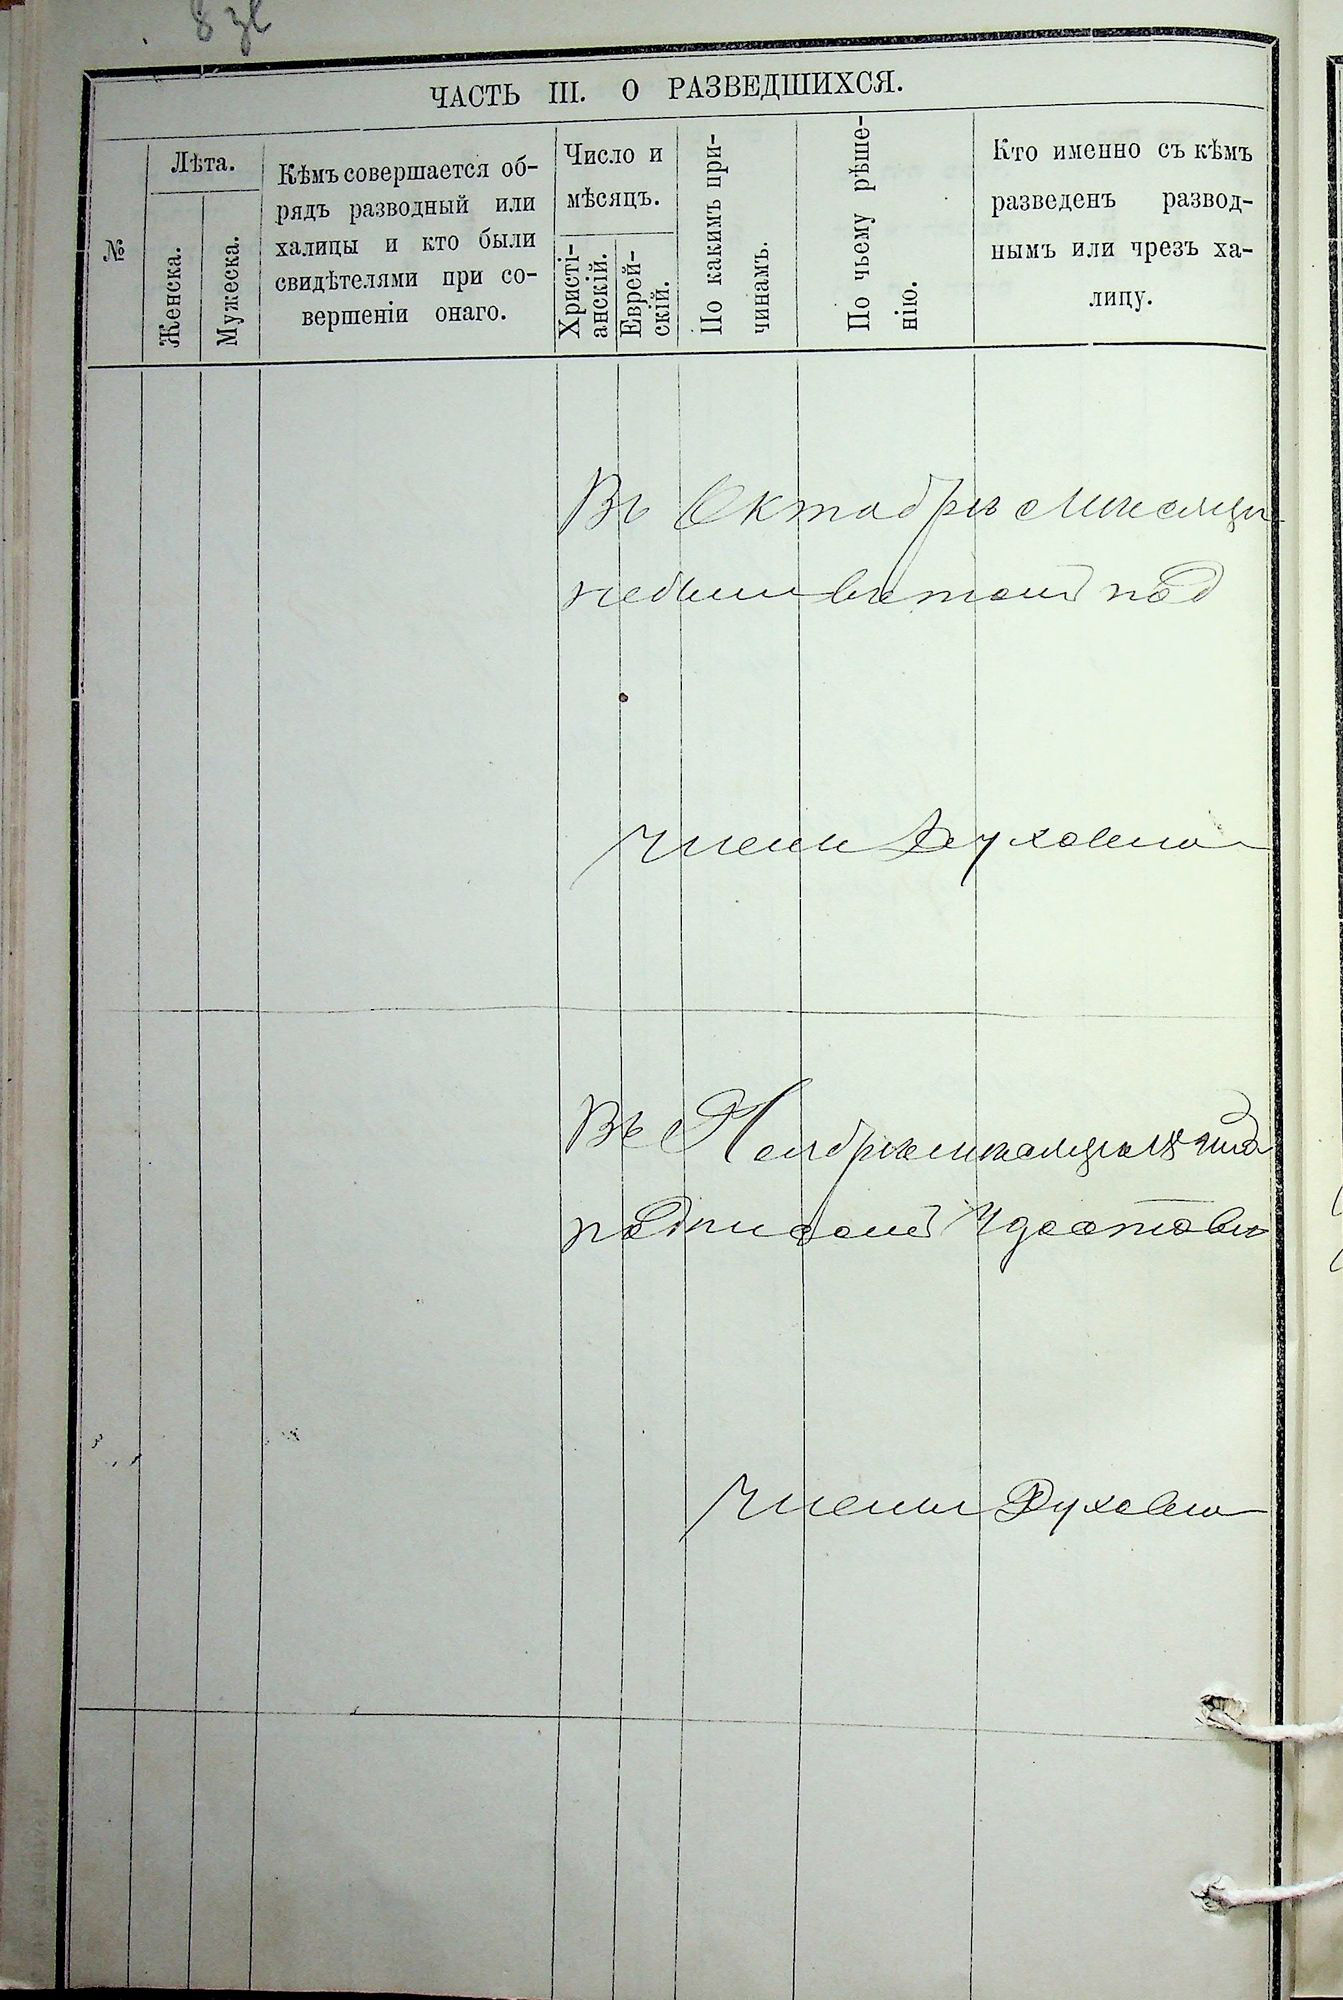 ЧАСТЬ III. О РАЗВЕДШИХСЯ.
№
Лѣта.
Женска.
Мужеска.
Кѣмъ совершается об-
рядъ разводный или
халицы и кто были
свидѣтелями при со-
вершеніи онаго.
Число и
мѣсяцъ.
Христі-
анскій.
Еврей-
скій.
По какимъ при-
чинамъ.
По чьему рѣше-
нію.
Кто именно съ кѣмъ
разведенъ развод-
нымъ или чрезъ ха-
лицу.
Въ Октябрѣ мѣсяцѣ
под
Члены Духовна
Въ Ноябрѣ мѣсяцѣ
подписей Удостовѣ
Члены Духовна